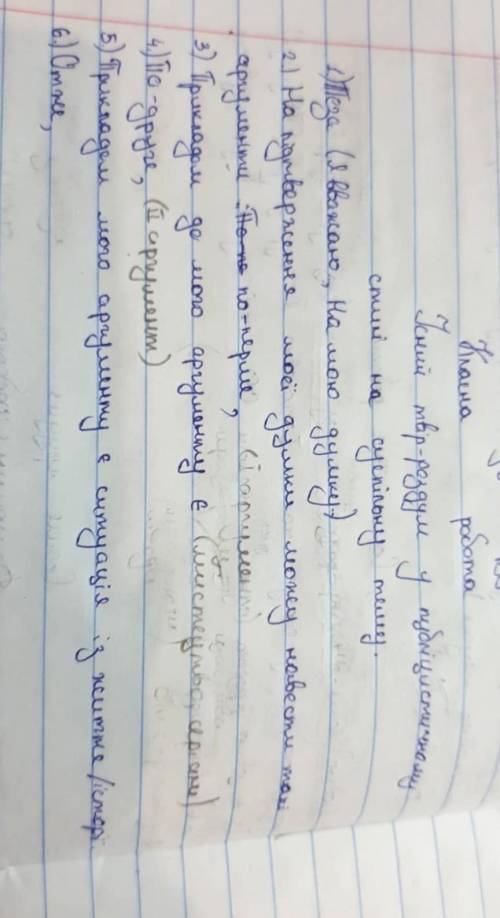 Класна робота
Усний твір-роздум у публіцистичному
стилі на суспільну тему.
1) Теза (я вважаю, на мою думку)
2) На підтвердження моєї думки можу навести такі
аргументи: По-по по-перше, (І аргумент)
3) Прикладом до мого аргументу є (мистецтво, серіали)
4) По-друге, (ІІ аргумент)
5) Прикладом мого аргументу є ситуація із життя/історі
6) Отже,